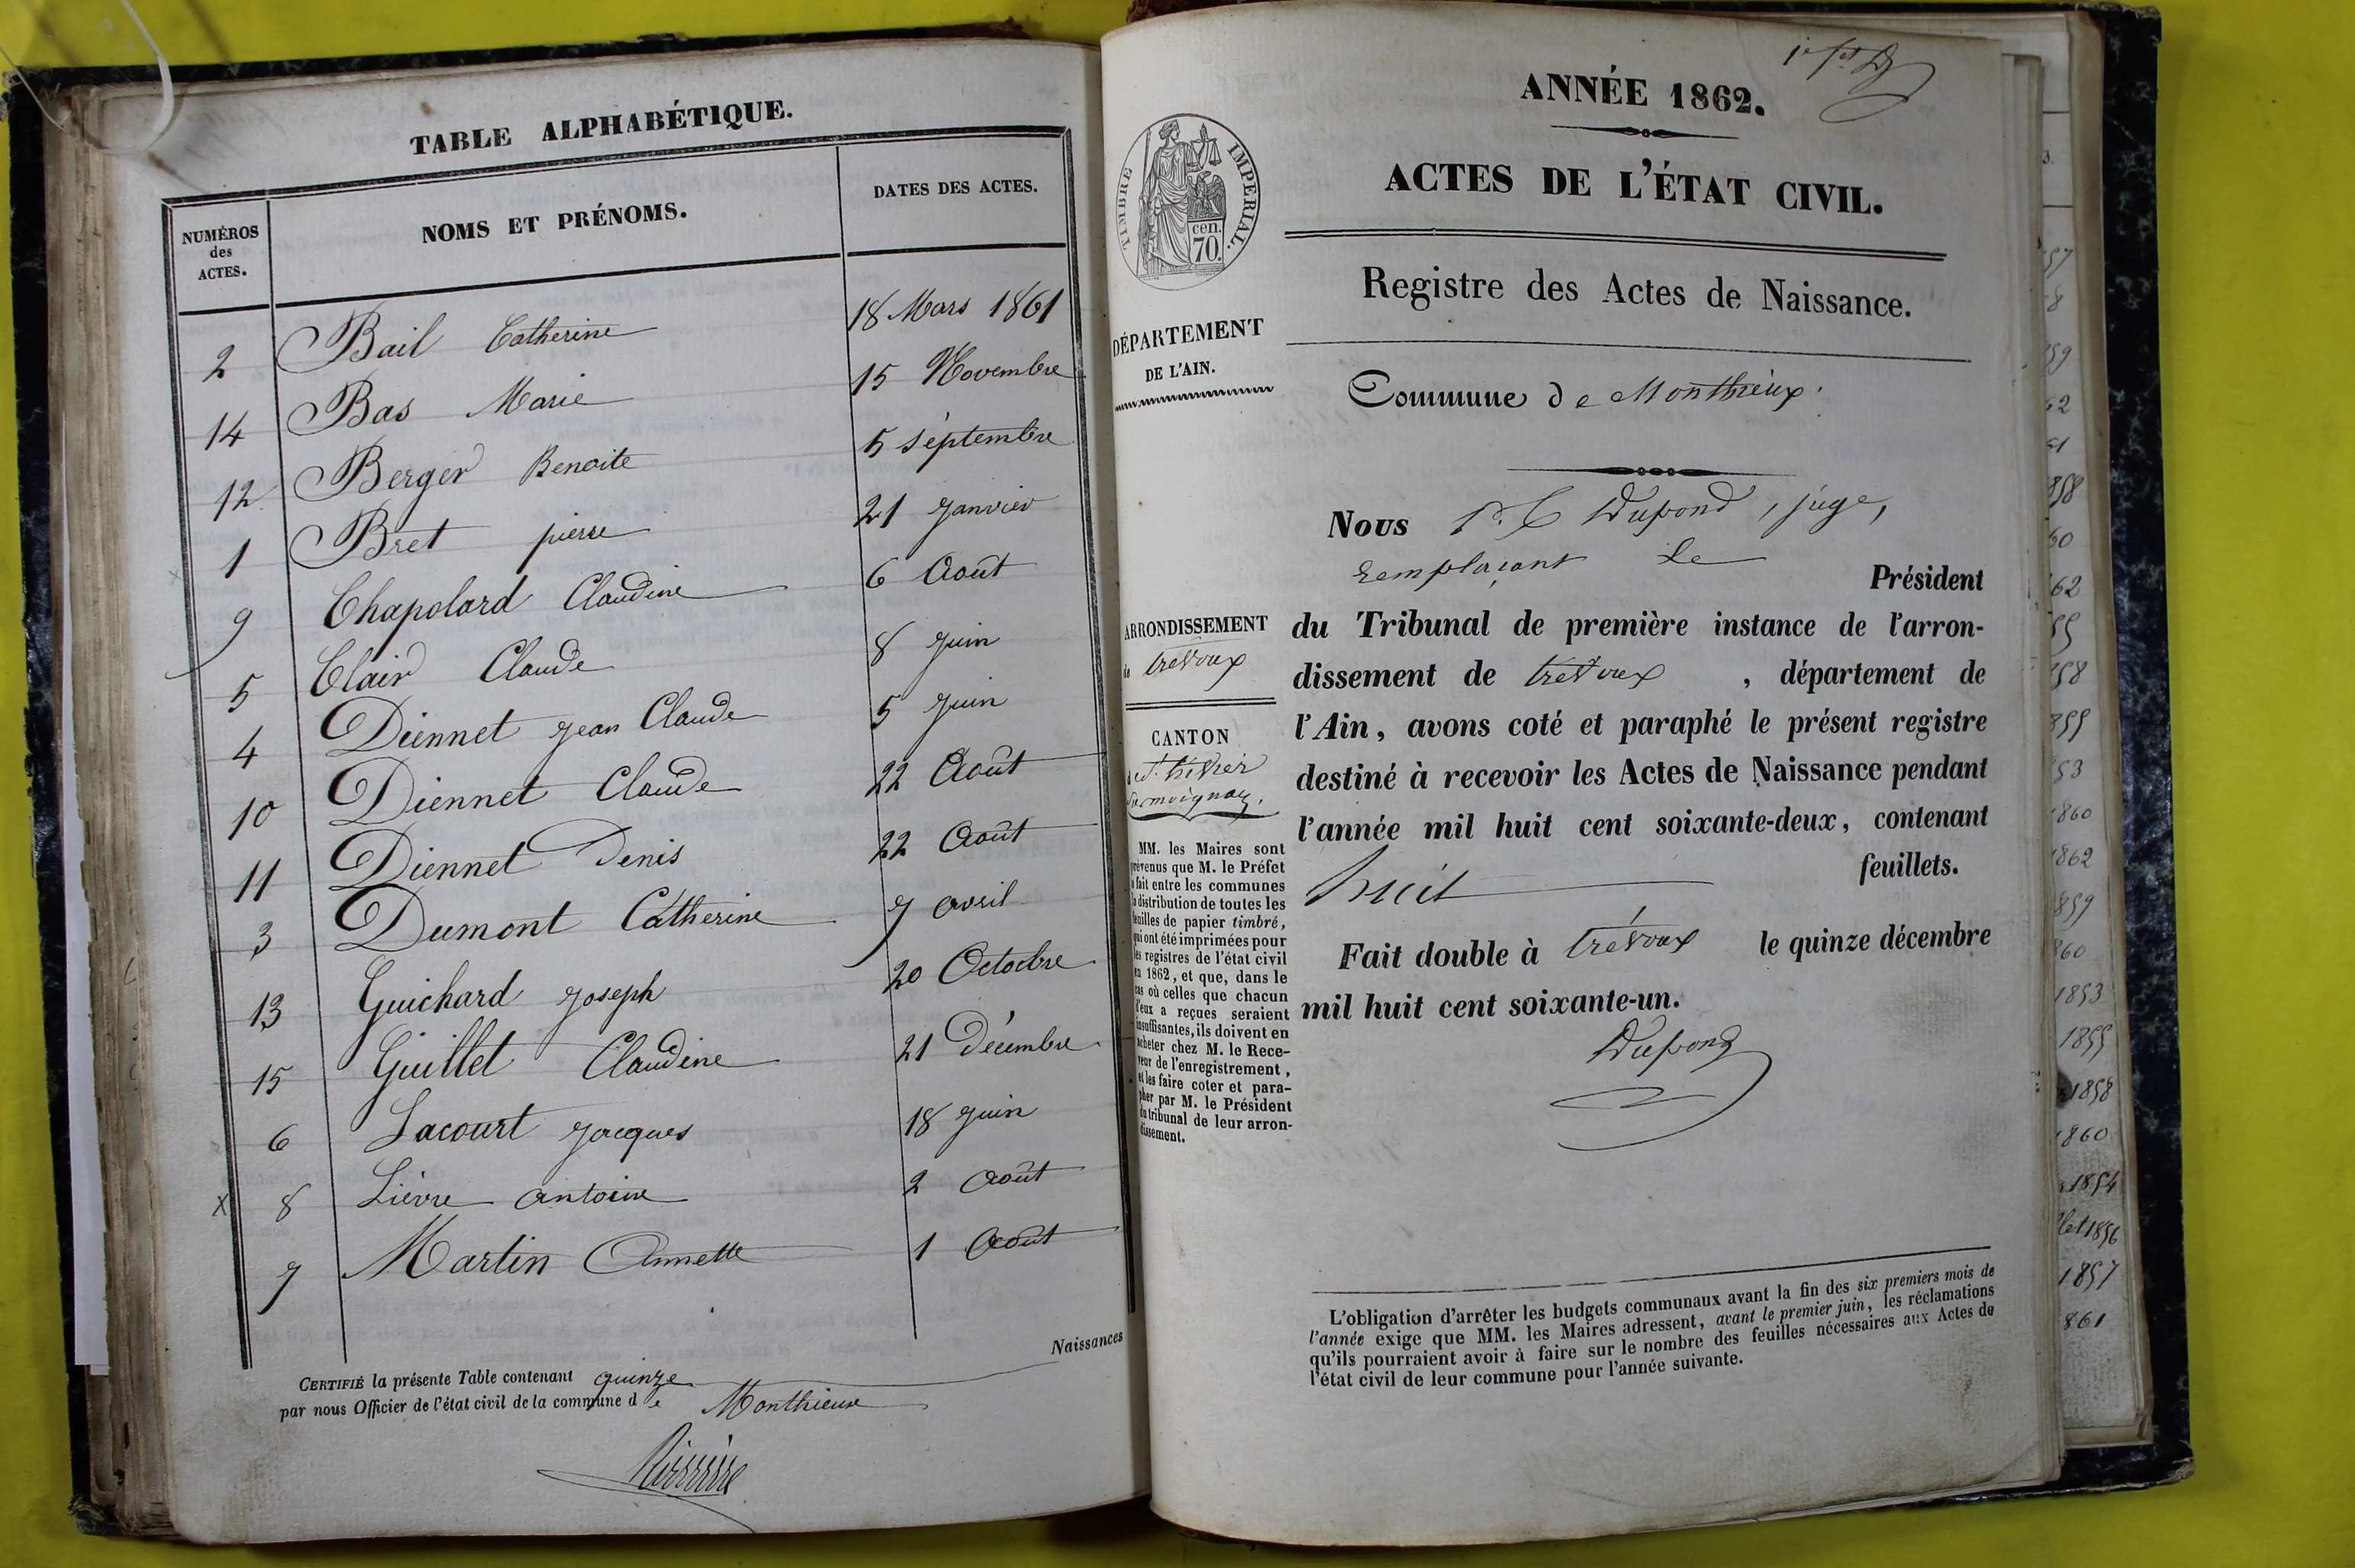 TABLE ALPHABÉTIQUE.
NUMÉROS
des
ACTES.
NOMS ET PRÉNOMS.
DATES DES ACTES.
2 Bail Catherine 18 Mars 1861
14 Bas Marie 15 Novembre
12 Berger Benoite 5 séptembre
1 Bret pierre 21 Janvier
9 Chapolard Claudine 6 Août
5 Clair Claude 8 Juin
4 Diennet Jean Claude 5 Juin
10 Diennet Claude 22 Août
11 Diennet Denis 22 Août
3 Dumont Catherine 7 avril
13 Guichard Joseph 20 Octobre
15 Guillet Claudine 21 Décembre
6 Lacourt Jacques 18 Juin
x 8 Lièvre antoine 2 Août
7 Martin Annette 1 Août
Naissances
CERTIFIÉ la présente Table contenant quinze
par nous Officier de l'état civil de la commune de Monthieux
ANNÉE 1862.
ACTES DE L'ÉTAT CIVIL.
TIMBRE IMPERIAL.
cen.
70.
Registre des Actes de Naissance.
DÉPARTEMENT
DE L'AIN.
Commune de Monthieux.
Nous Dupond, juge,
remplaçant le
Président
ARRONDISSEMENT
de trevoux
du Tribunal de première instance de l'arron-
dissement de trevoux, département de
l'Ain, avons coté et paraphé le présent registre
destiné à recevoir les Actes de Naissance pendant
l'année mil huit cent soixante-deux, contenant
huit feuillets.
CANTON
MM. les Maires sont
prévenus que M. le Préfet
a fait entre les communes
la distribution de toutes les
feuilles de papier timbré,
qui ont été imprimées pour
les registres de l'état civil
en 1862, et que, dans le
cas où celles que chacun
d'eux a reçues seraient
insuffisantes, ils doivent en
acheter chez M. le Rece-
veur de l'enregistrement,
et les faire coter et para-
pher par M. le Président
du tribunal de leur arron-
dissement.
Fait double à trévoux le quinze décembre
mil huit cent soixante-un.
Dupond
L'obligation d'arrêter les budgets communaux avant la fin des six premiers mois de
l'année exige que MM. les Maires adressent, avant le premier juin, les réclamations
qu'ils pourraient avoir à faire sur le nombre des feuilles nécessaires aux Actes de
l'état civil de leur commune pour l'année suivante.
1860
1862
1853
1855
1858
1860
1854
1856
1857
861